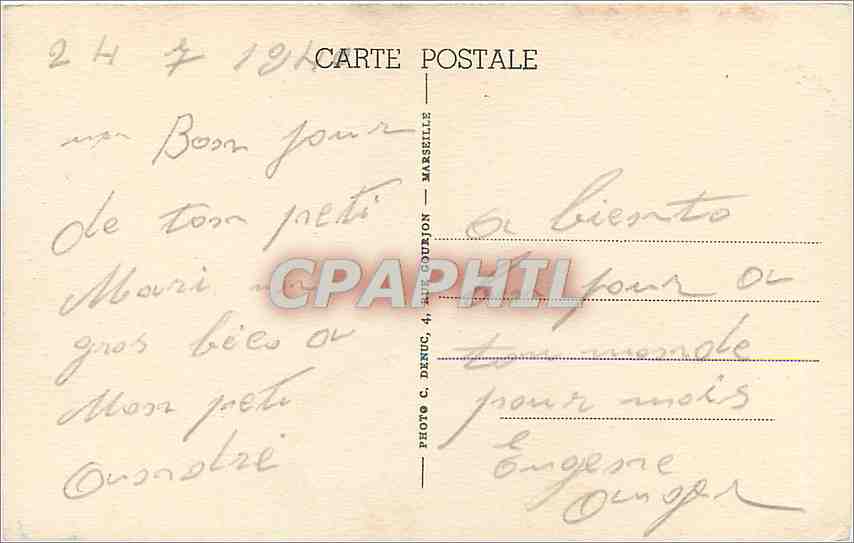 24 7 194
CARTE POSTALE
un Bon jour
de ton peti
Mari un
gros béco a
Mon peti
André
PHOTO C. DENUC, 4, RUE GOURJON — MARSEILLE
CPAPHIL
a biento
jour a
tou monde
pour mois
Eugene
Auger